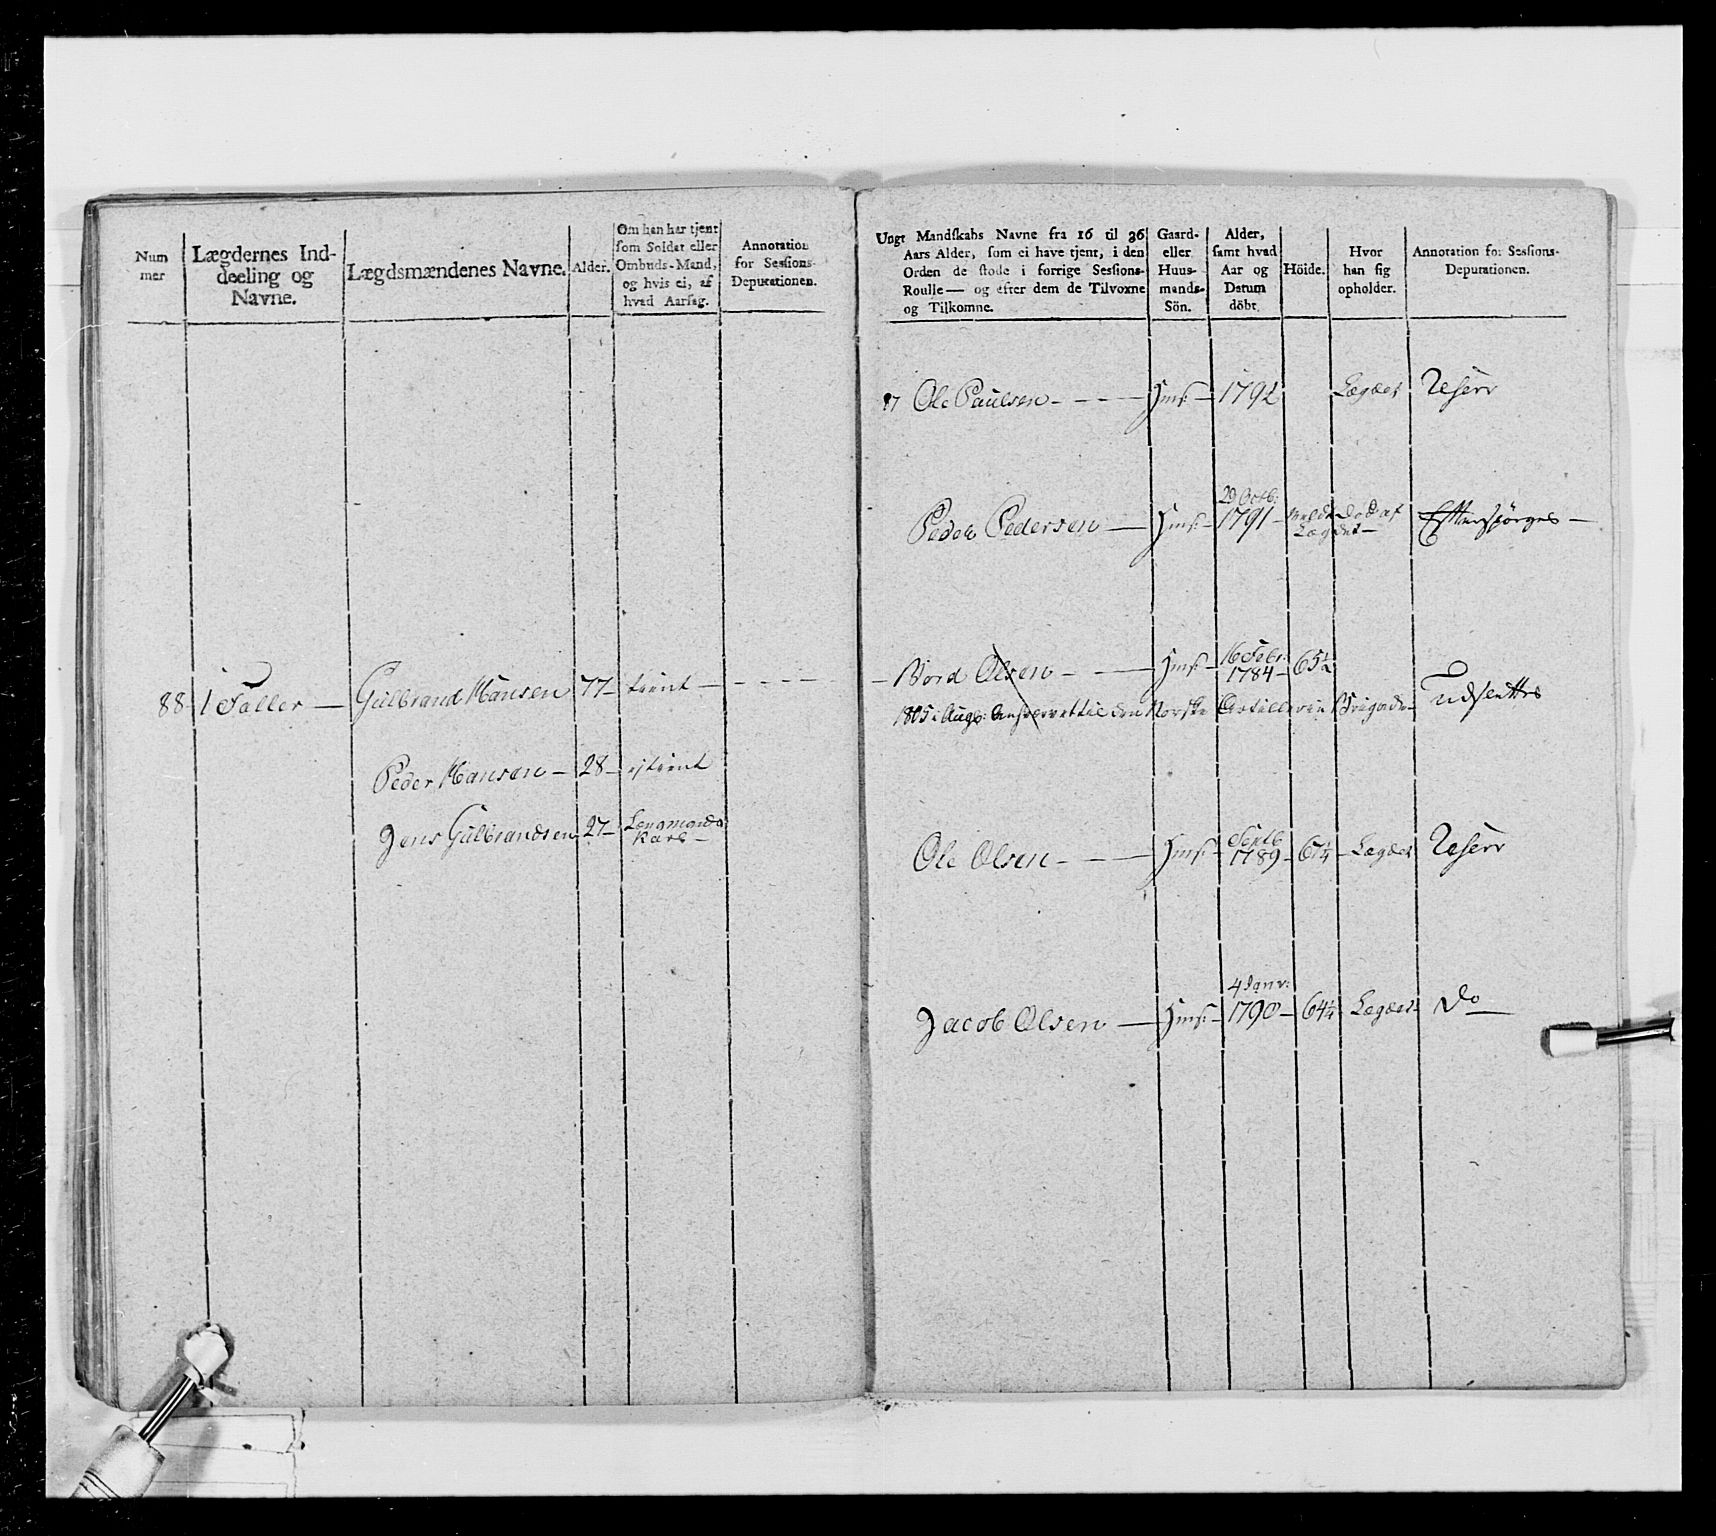 Num
mer
Lægdernes Ind-
deeling og
Navne.
Lægdsmændenes Navne.
Alder.
Om han har tjent
som Soldat eller
Ombuds-Mand,
og hvis ei, af
hvad Aarsag.
Annotation
for Sessions-
Deputationen.
88 1 Faller — Gulbrand Hansen 77 — tient —
Peder Hansen — 28 — ej tient
Jens Gulbrandsen 27 — Langmands
Karl —
Ungt Mandskabs Navne fra 16 til 36
Aars Alder, som ei have tjent, i den
Orden de stode i forrige Sessions-
Roulle — og efter dem de Tilvoxne
og Tilkomne.
Gaard-
eller
Huus-
mands-
Sön.
Alder,
samt hvad
Aar og
Datum
döbt.
Höide.
Hvor
han sig
opholder.
Annotation for Sessions-
Deputationen.
87 Ole Paulsen — Hms: — 1792 Lægdet Reserv
29 Octb:
Peder Pedersen — Hms: — 1791 — meldt død af Efterspørges —
Lægdet —
16 Febr:
Olsen — Hms: — 1784 — 65½
1805 i Aug: til den Norske Artillerie Brigade — Udsættes
Septb
Ole Olsen — Hms: — 1789 — 67¼ — Lægdet Reserv
4 Janv:
Jacob Olsen — Hms: — 1790 — 64¼ Lægdet — Do